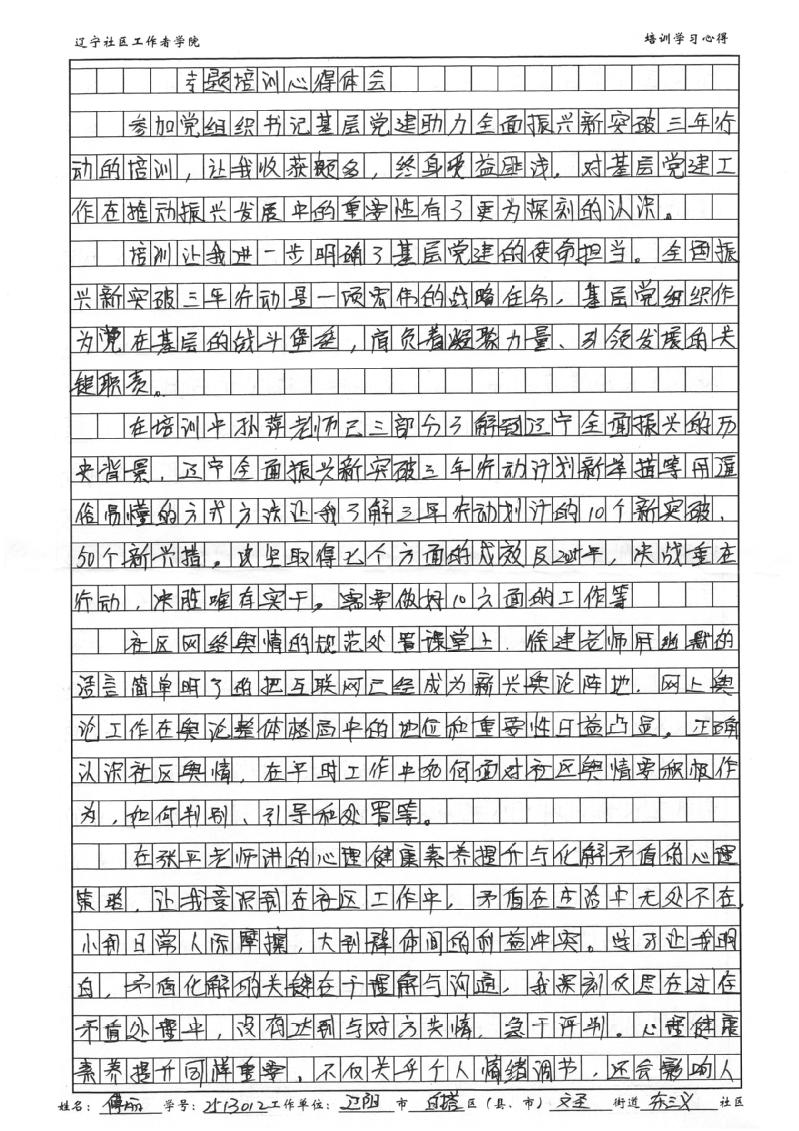 辽宁社区工作者学院 培训学习心得
专题培训心得体会
参加党组织书记基层党建助力全面振兴新突破三年行
动的培训，让我收获颇多，终身受益匪浅。对基层党建工
作在推动振兴发展中的重要性有了更为深刻的认识。
培训让我进一步明确了基层党建的使命担当。全面振
兴新突破三年行动是一项宏伟的战略任务，基层党组织作
为党在基层的战斗堡垒，肩负着凝聚力量、引领发展的关
键职责。
在培训中孙萍老师已三部分了解到辽宁全面振兴的历
史背景，辽宁全面振兴新突破三年行动计划新举措等用通
俗易懂的方式方法让我了解三年行动划计的10个新突破、
50个新兴措。这里取得七个方面的成效及2025年，决战重在
行动，决胜唯有实干。需要做好10方面的工作等
社区网络舆情的规范处置课堂上，徐建老师用幽默的
语言简单明了的把互联网已经成为新兴舆论阵地，网上舆
论工作在舆论整体格局中的地位和重要性日益凸显。正确
认识社区舆情，在平时工作中如何面对社区舆情要积极作
为，如何判别、引导和处置等。
在张平老师讲的心理健康素养提升与化解矛盾的心理
策略，让我意识到在社区工作中，矛盾在生活中无处不在，
小到日常人际摩擦，大到群体间的利益冲突。学习让我明
白，矛盾化解的关键在于理解与沟通，我深刻反思在过在
矛盾处理中，没有达到与对方共情，急于评判。心理健康
素养提升同样重要，不仅关乎个人情绪调节，还会影响人
姓名：傅丽 学号：2513012 工作单位：辽阳 市 白塔 区（县、市） 文圣 街道 东三义 社区